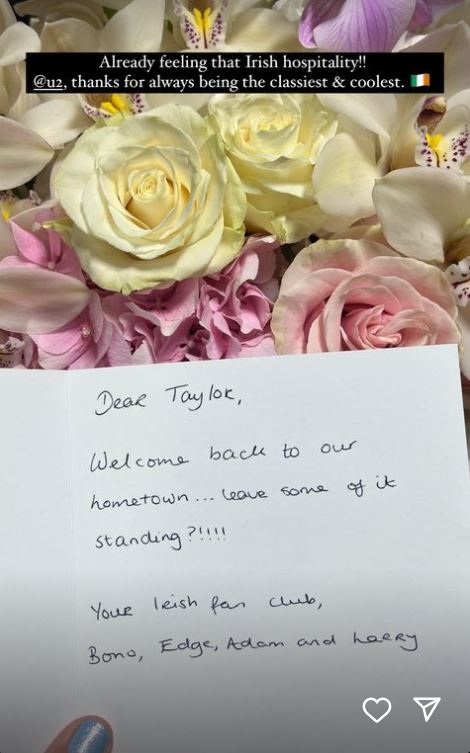 Already feeling that Irish hospitality!!
@u2, thanks for always being the classiest & coolest. 🇮🇪
Dear Taylor,
Welcome back to our
hometown... leave some of it
standing?!!!!
Your Irish fan club,
Bono, Edge, Adam and Larry